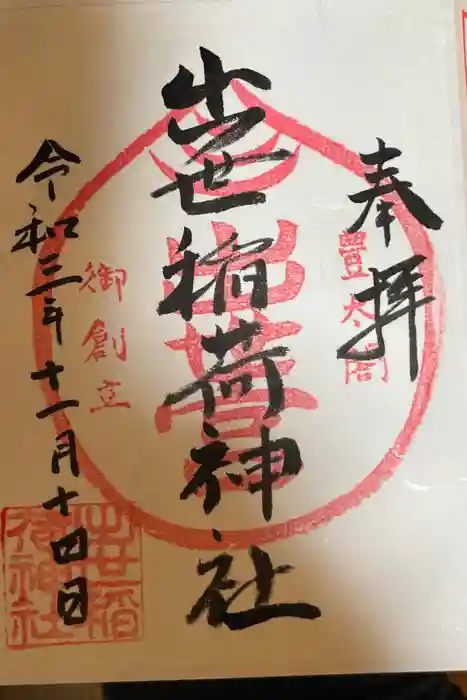 奉拝
豊太閤
出世稲荷神社
出世
御創立
令和三年十一月十四日
出世稲荷神社